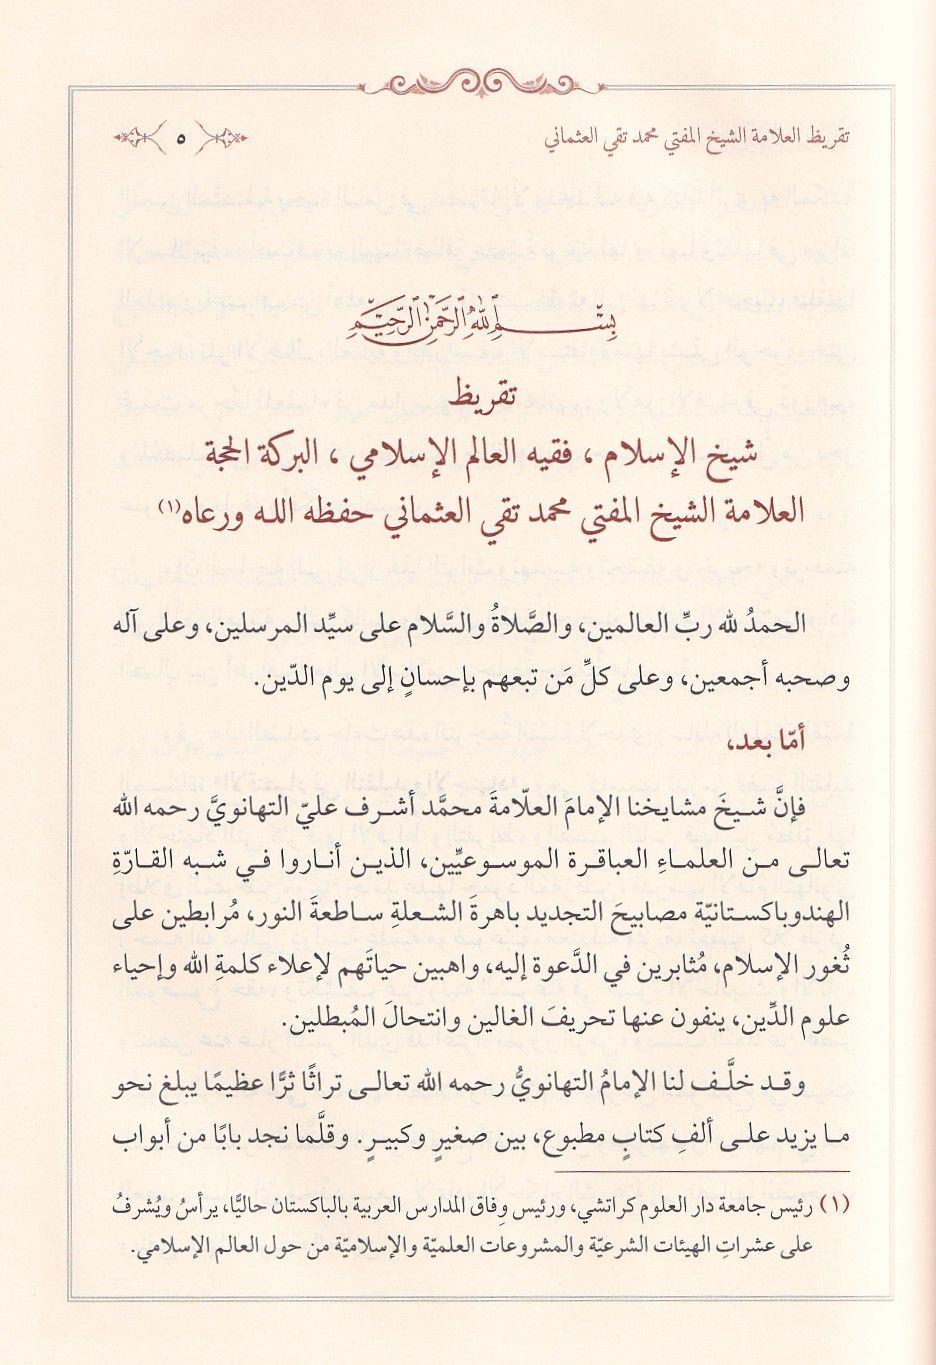 تقريظ العلامة الشيخ المفتي محمد تقي العثماني
٥
بسم الله الرحمن الرحيم
تقريظ
شيخ الإسلام ، فقيه العالم الإسلامي ، البركة الحجة
العلامة الشيخ المفتي محمد تقي العثماني حفظه الله ورعاه(١)
الحمدُ لله ربِّ العالمين، والصَّلاةُ والسَّلام على سيِّد المرسلين، وعلى آله
وصحبه أجمعين، وعلى كلِّ مَن تبعهم بإحسانٍ إلى يوم الدّين.
أمّا بعد،
فإنَّ شيخَ مشايخنا الإمامَ العلّامةَ محمَّد أشرف عليّ التهانويَّ رحمه الله
تعالى من العلماءِ العباقرة الموسوعيِّين، الذين أناروا في شبه القارّةِ
الهندوباكستانيّة مصابيحَ التجديد باهرةَ الشعلةِ ساطعةَ النور، مُرابطين على
ثُغور الإسلام، مُثابرين في الدَّعوة إليه، واهبين حياتَهم لإعلاء كلمةِ الله وإحياء
علوم الدِّين، ينفون عنها تحريفَ الغالين وانتحالَ المُبطلين.
وقد خلَّف لنا الإمامُ التهانويُّ رحمه الله تعالى تراثًا ثرًّا عظيمًا يبلغ نحو
ما يزيد على ألفِ كتابٍ مطبوع، بين صغيرٍ وكبيرٍ. وقلَّما نجد بابًا من أبواب
(١) رئيس جامعة دار العلوم كراتشي، ورئيس وِفاق المدارس العربية بالباكستان حاليًّا، يرأسُ ويُشرفُ
على عشراتِ الهيئات الشرعيّة والمشروعات العلميّة والإسلاميّة من حول العالم الإسلامي.